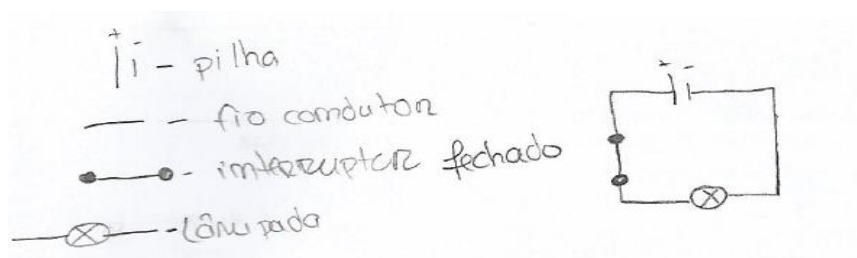 + -
- pilha
- fio comdutor
- imterruptor fechado
- lâmpada
+ -